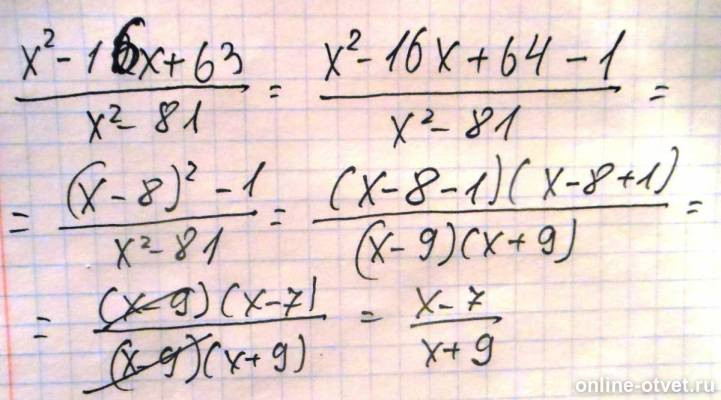 (x² - 16x + 63)/(x² - 81) = (x² - 16x + 64 - 1)/(x² - 81) =
= ((x - 8)² - 1)/(x² - 81) = ((x - 8 - 1)(x - 8 + 1))/((x - 9)(x + 9)) =
= ((x - 9)(x - 7))/((x - 9)(x + 9)) = (x - 7)/(x + 9)
online-otvet.ru